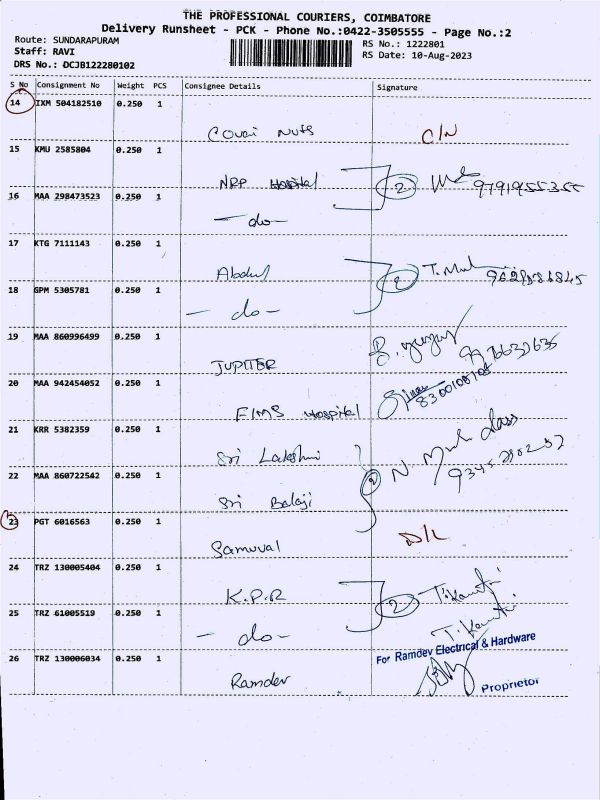 THE PROFESSIONAL COURIERS, COIMBATORE
Delivery Runsheet - PCK - Phone No.:0422-3505555 - Page No.:2
Route: SUNDARAPURAM
RS No.: 1222801
Staff: RAVI
RS Date: 10-Aug-2023
DRS No.: DCJB122280102
S No Consignment No Weight PCS Consignee Details Signature
14 IXM 504182510 0.250 1
Covai Nuts C/N
15 KMU 2585804 0.250 1
NRP Hospital 2 9791955355
16 MAA 298473523 0.250 1
- do -
17 KTG 7111143 0.250 1
Abdul 2 T.
18 GPM 5305781 0.250 1
- do -
19 MAA 860996499 0.250 1
JUPITER
20 MAA 942454052 0.250 1
FIMS Hospital
21 KRR 5382359 0.250 1
Sri Lakshmi
22 MAA 860722542 0.250 1
Sri Balaji 2 N
23 PGT 6016563 0.250 1
Samuval D/L
24 TRZ 130005404 0.250 1
K.P.R 2
25 TRZ 61005519 0.250 1
- do -
For Ramdev Electrical & Hardware
26 TRZ 130006034 0.250 1
Ramdev
Proprietor